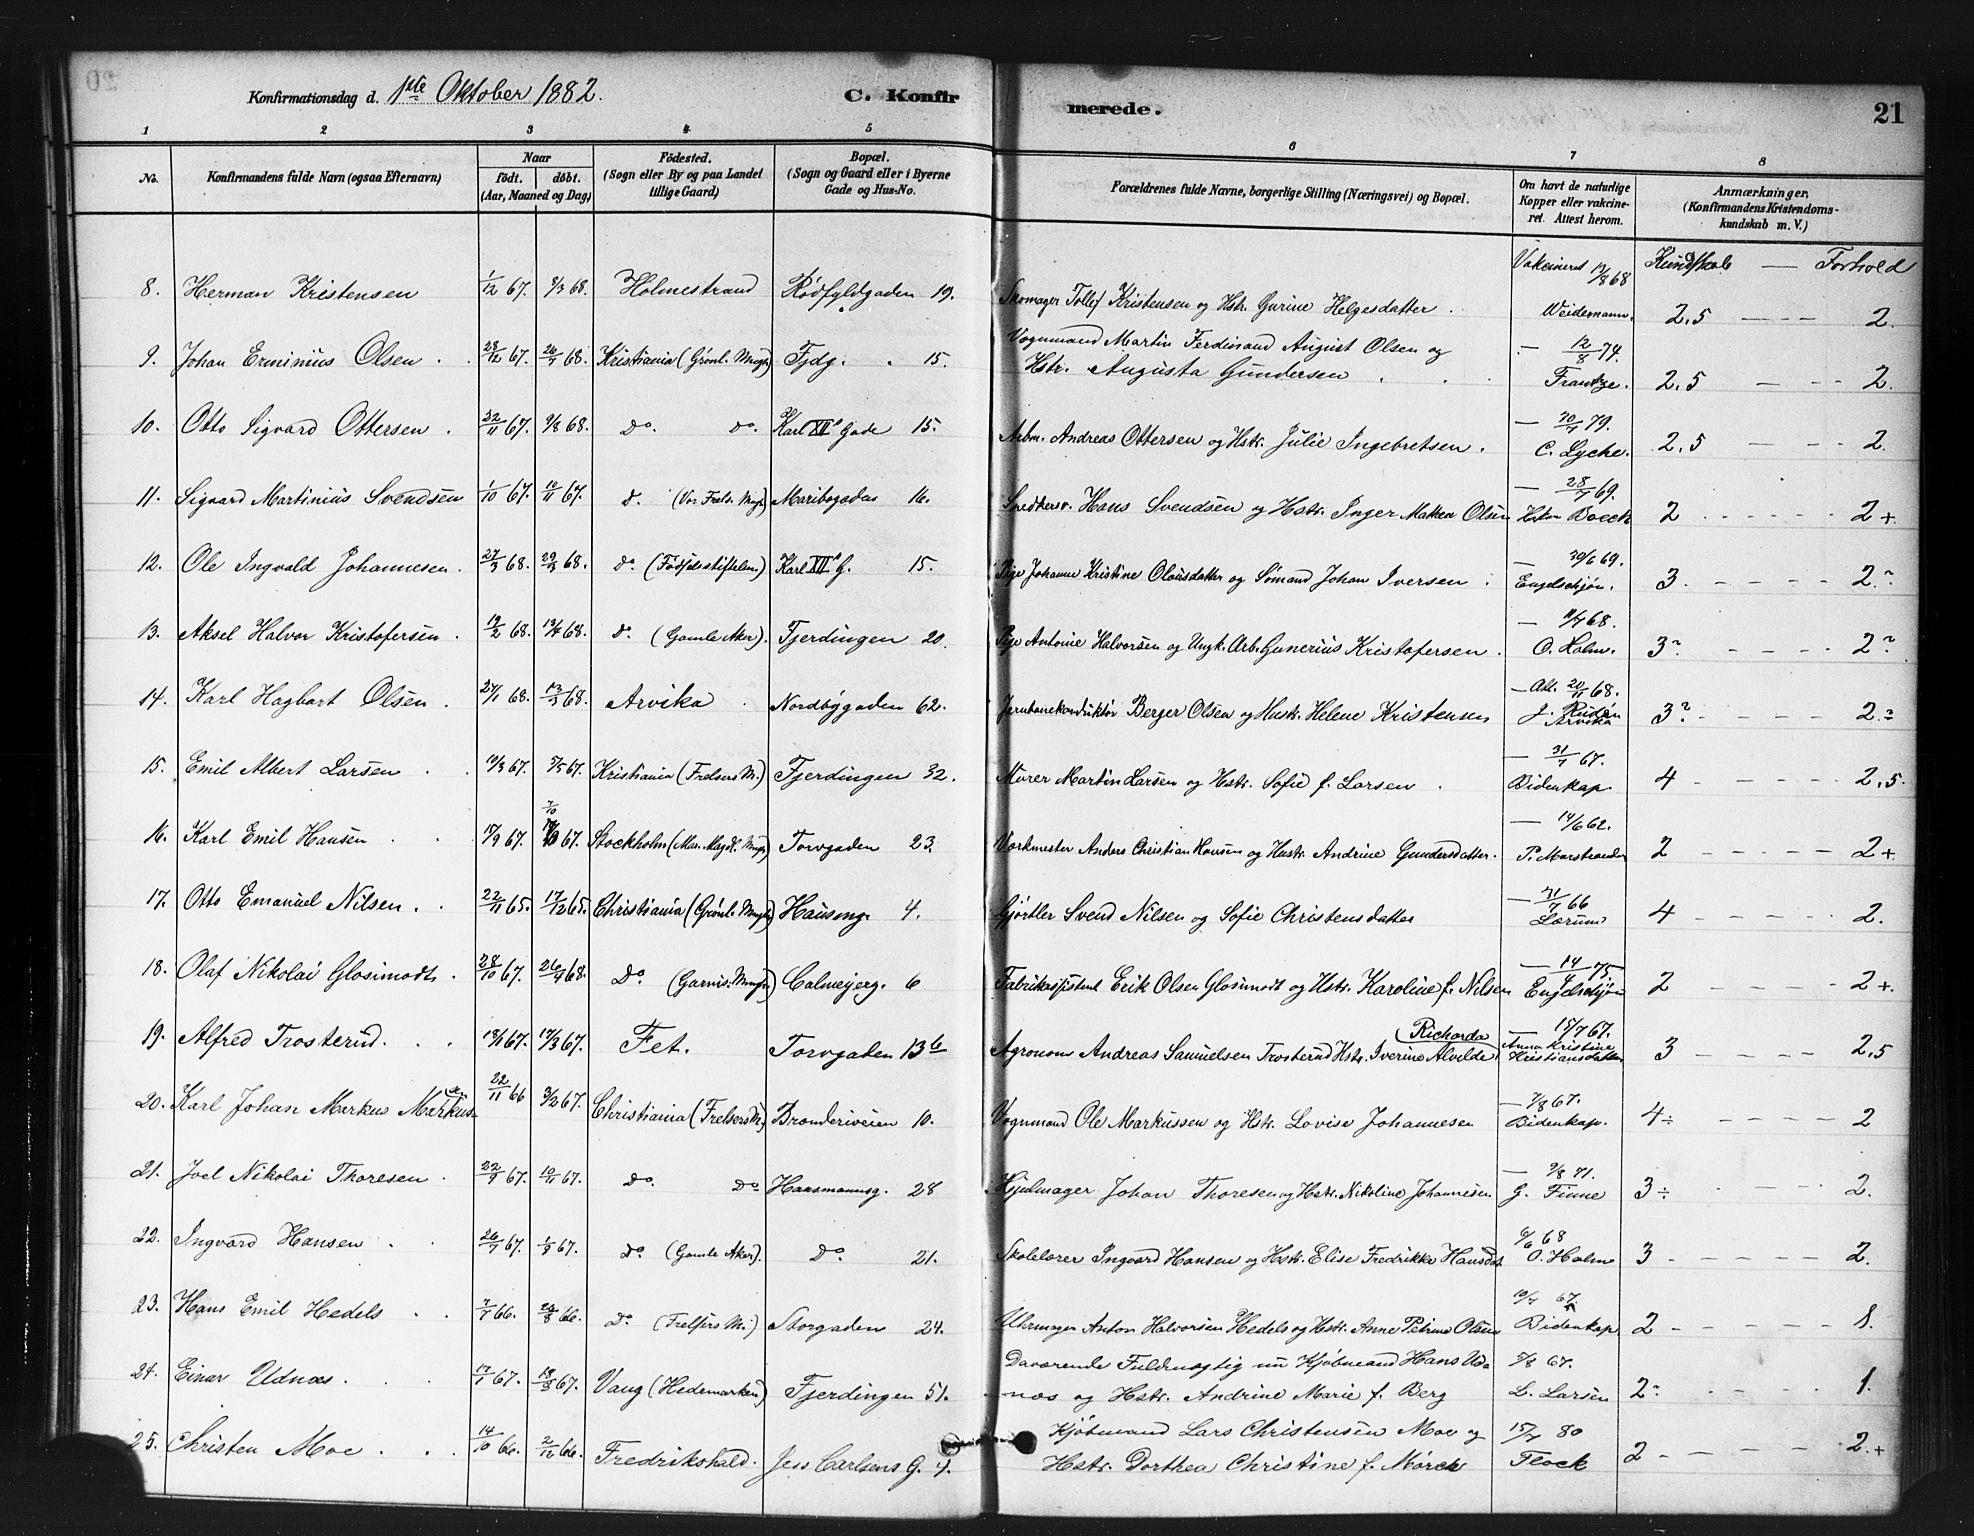 Konfirmationsdag d. 1ste Oktober 1882. C. Konfirmerede. 21
1 2 3 4 5 6 7 8
No. Konfirmandens fulde Navn (ogsaa Efternavn) Naar födt. döbt. (Aar, Maaned og Dag) Födested. (Sogn eller By og paa Landet tillige Gaard) Bopæl. (Sogn og Gaard eller i Byerne Gade og Hus-No. Forældrenes fulde Navne, borgerlige Stilling (Næringsvei) og Bopæl. Om havt de naturlige Kopper eller vakcineret. Attest herom. Anmærkninger. (Konfirmandens Kristendomskundskab m. V.)
Kundskab — Forhold
8. Herman Kristensen 1/12 67. 8/3 68. Holmestrand Rødfyldgaden 19. Skomager Tollef Kristensen og Hstr. Gurine Helgesdatter. Vakcineret 12/8 68 Weidemann. 2,5 — 2.
9. Johan Erminius Olsen 28/12 67. 26/4 68. Kristiania (Grönl. Mngh.) Fjdg. 15. Vognmand Martin Ferdinand August Olsen og
Hstr. Augusta Gundersen — 12/8 74. Frantze. 2,5 — 2.
10. Otto Sigvard Ottersen 22/11 67. 9/8 68. Do. Do. Karl XIIs Gade 15. Arbm. Andreas Ottersen og Hstr. Julie Ingebretsen. 79. C. Lyche. 2,5 — 2.
11. Sigvard Martinius Svendsen 1/10 67. 10/11 67. Do. (Vor Frels. Mngh.) Maribogaden 16. Snedkersv. Hans Svendsen og Hstr. Inger Mathea Olsen — 28/7 69. Boeck 2 — 2+.
12. Ole Ingvald Johannesen. 27/3 68. 29/3 68. Do (Födselsstiftelsen) Karl XIIs G. 15. Pige Johanne Kristine Olausdatter og Sømand Johan Iversen. — 30/6 69. Engelschjøn. 3. — 2.?
13. Aksel Halvor Kristofersen. 19/2 68. 19/4 68. Do. (Gamle Aker). Fjerdingen 20. Pige Antonie Halvorsen og Ungk. Arb. Gunerius Kristofersen. — 11/7 68. O. Holm. 3? — 2?
14. Karl Hagbart Olsen. 27/1 68. 13/3 68. Arvika Nordbygaden 62. Jernbanekonduktör Berger Olsen og Hustr. Helene Kristensen — Att. 20/11 68. J. Rudén Arvika 3? — 2.?
15. Emil Albert Larsen 19/3 67. 5/5 67. Kristiania (Frelsers M.) Fjerdingen 32. Murer Martin Larsen og Hstr. Sofie f. Larsen. — 31/7 67. Bidenkap 4 — 2,5.
16. Karl Emil Hansen 17/9 67. 7/10 67. Stockholm (Mar. Magdl. Mngh.) Torvgaden 23. Værkmester Anders Christian Hansen og Hustr. Andrine Gundersdatter. — 14/6 62. P. Marstrander 2 — 2+
17. Otto Emanuel Nilsen. 22/11 65. 17/12 65. Christiania (Grönl. Mngh.) Hausmg. 4. Gjørtler Svend Nilsen og Sofie Christensdatter — 31/7 66 Lærum 4 — 2.
18. Olaf Nikolai Glosimodt. 28/10 67. 26/4 68. Do (Garnis. Mngh.) Calmeyerg. 6 Fabrikassistent Erik Olsen Glosimodt og Hstr. Karoline f. Nilsen — 14/4 75. Engelschjøn 2 — 2+.
19. Alfred Trosterud. 18/1 67. 17/3 67. Fet. Torvgaden 13b Agronom Andreas Samuelsen Trosterud Hstr. Iverine Alvilde (Richarda — 15/7 67. Anna Kristine Kristiansdatter 3 — 2,5
20. Karl Johan Markus Markussen 22/11 66 3/2 67. Christiania (Frelsers M.) Brænderiveien 10. Vognmand Ole Markussen og Hstr. Lovise Johannesen — 7/8 67. Bidenkap. 4÷ — 2
21. Joel Nikolai Thoresen. 22/9 67. 10/11 67. Do. Do Hausmannsg. 28 Hjulmager Johan Thoresen og Hstr. Nikoline Johannesen — 9/8 71. G. Finne 3÷ — 2.
22. Ingvard Hansen. 26/7 67. 1/9 67. Do. (Gamle Aker). Do 21. Skolelærer Ingvard Hansen og Hstr. Elise Fredrikke Hansdat. 6/6 68 O. Holm 3 — 2.
23. Hans Emil Hedels 7/7 66. 26/8 66. Do (Frelsers M.) Storgaden 24. Uhrmager Anton Halvorsen Hedels og Hstr. Anne Petrine Olsen 10/7 67. Bidenkap 2 — 1.
24. Einar Udnæs. 17/1 67. 18/8 67. Vang (Hedemarken) Fjerdingen 51. Daværende Fuldmægtig nu Kjøbmand Hans Ud-
næs og Hstr. Andrine Marie f. Berg 5/8 67. L. Larsen 2? — 1.
25. Christen Moe. 14/10 66. 2/12 66. Fredrikshald. Jess Carlsens G. 4. Kjøbmand Lars Christensen Moe og
Hstr. Dorthea Christine f. Mørch 15/7 80 Flock 2 — 2.+